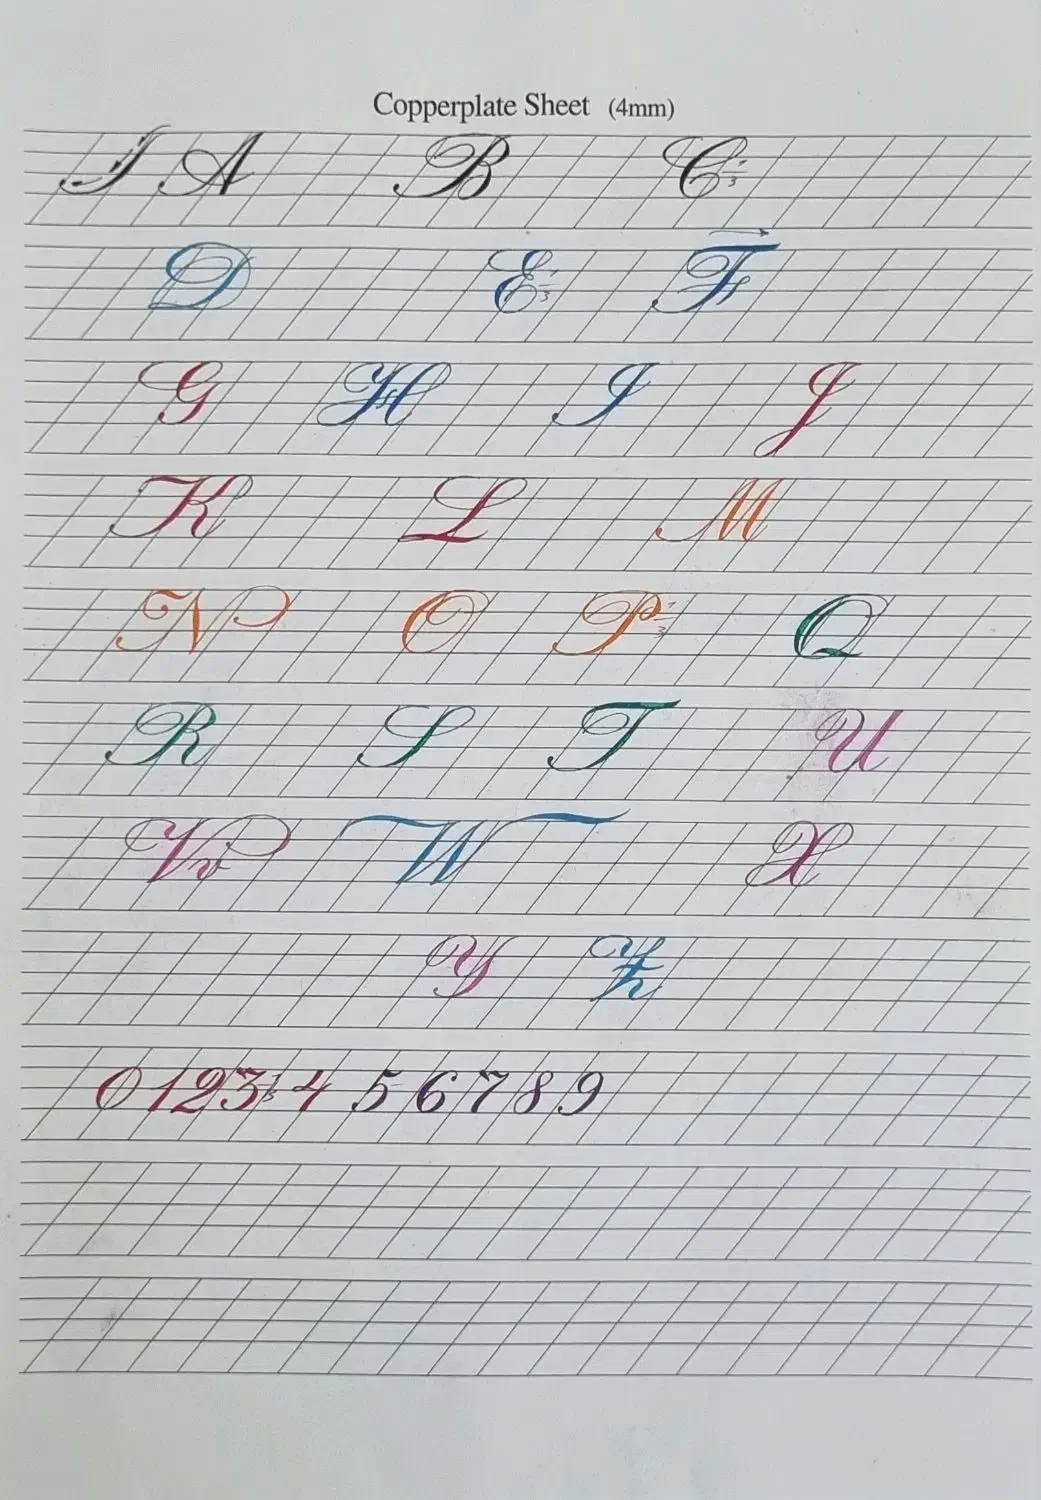 Copperplate Sheet (4mm)
A B C
D E F
G H I J
K L M
N O P Q
R S T U
V v W X
Y Z
0 1 2 3 4 5 6 7 8 9